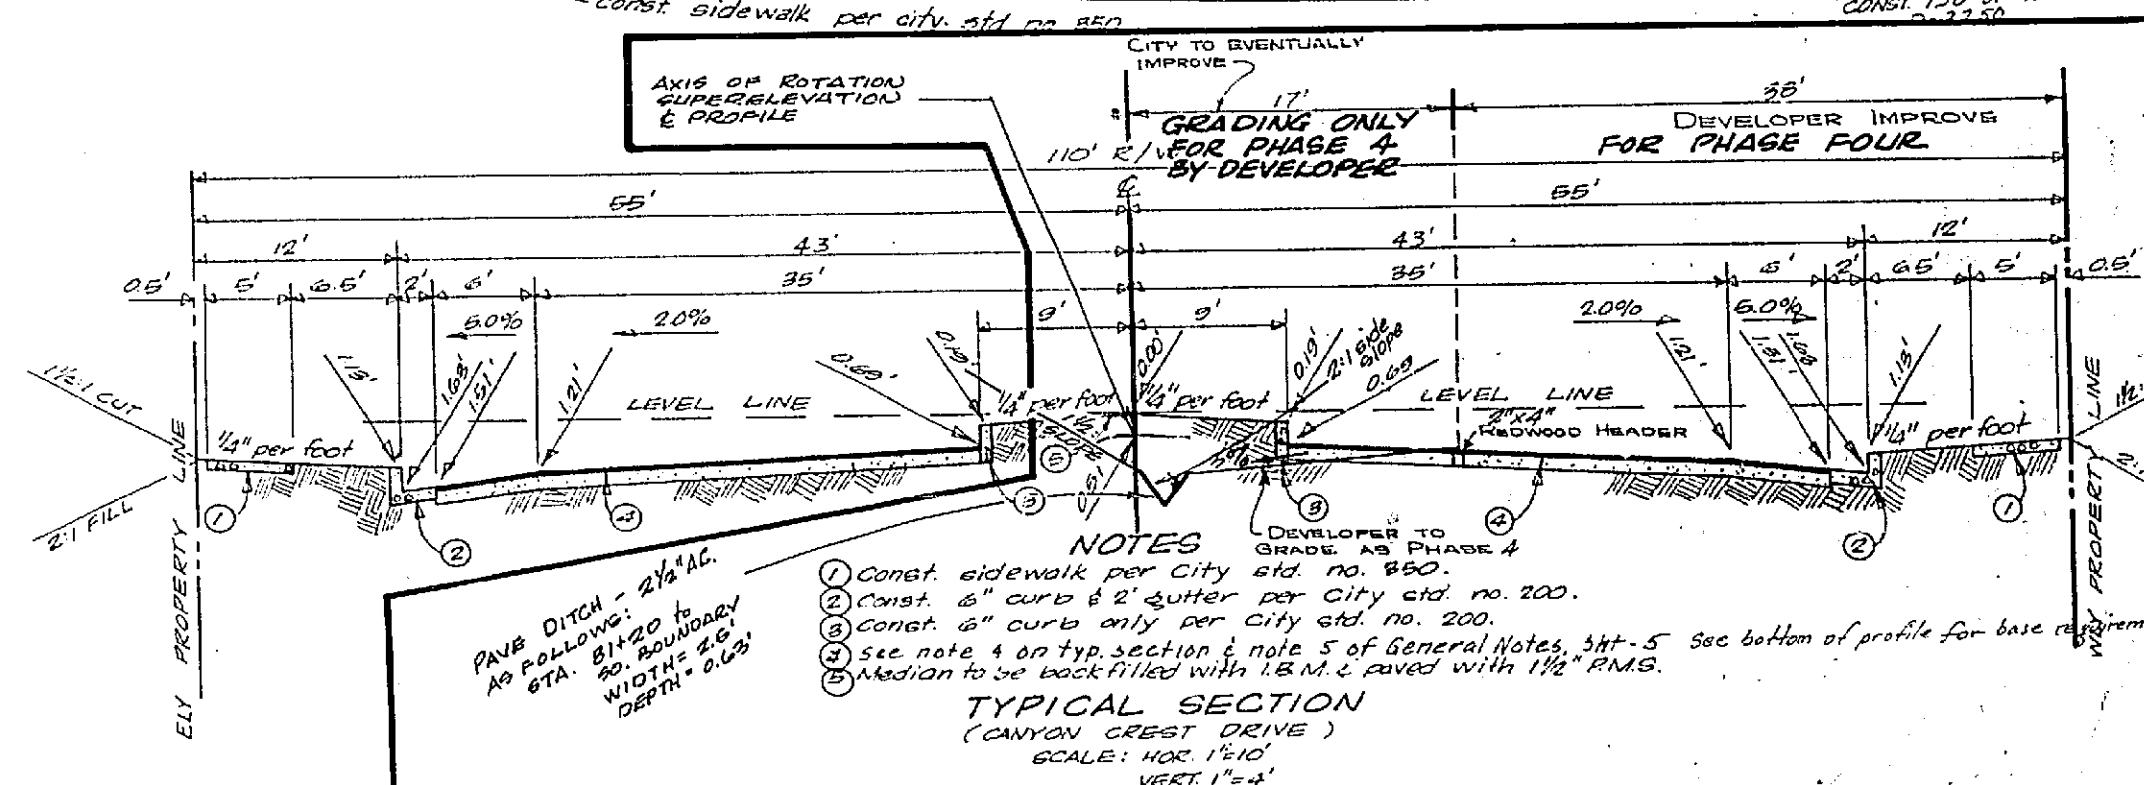 Const. sidewalk per city. std no 850
CONST.
CITY TO EVENTUALLY
IMPROVE
AXIS OF ROTATION
SUPERELEVATION
& PROFILE
17'
38'
GRADING ONLY
FOR PHASE 4
BY DEVELOPER
DEVELOPER IMPROVE
FOR PHASE FOUR
110' R/W
55'
℄
55'
12'
43'
43'
12'
0.5'
5'
6.5'
2'
6'
35'
35'
6'
2'
6.5'
5'
0.5'
9'
9'
5.0%
2.0%
2.0%
5.0%
1.13'
1.68'
1.51'
1.21'
0.69'
0.19'
0.00'
0.19'
2:1 side
slope
0.69
1.21'
1.51'
1.68
1.13'
1½:1 CUT
2:1 FILL
LEVEL LINE
LEVEL LINE
¼" per foot
¼" per foot
¼" per foot
¼" per foot
2"x4"
REDWOOD HEADER
0.51
1
2
4
5
3
3
4
2
1
DEVELOPER TO
GRADE AS PHASE 4
ELY PROPERTY LINE
WLY PROPERTY LINE
PAVE DITCH - 2½" AC.
AS FOLLOWS:
STA. 81+20 to
SO. BOUNDARY
WIDTH = 2.6'
DEPTH = 0.63'
NOTES
1 Const. sidewalk per City std. no. 850.
2 Const. 6" curb & 2' gutter per City std. no. 200.
3 Const. 6" curb only per City std. no. 200.
4 see note 4 on typ. section & note 5 of General Notes, SHT-5 See bottom of profile for base requirem
5 Median to be backfilled with I.B.M. & paved with 1½" P.M.S.
TYPICAL SECTION
(CANYON CREST DRIVE)
SCALE: HOR. 1"=10'
VERT. 1"=4'